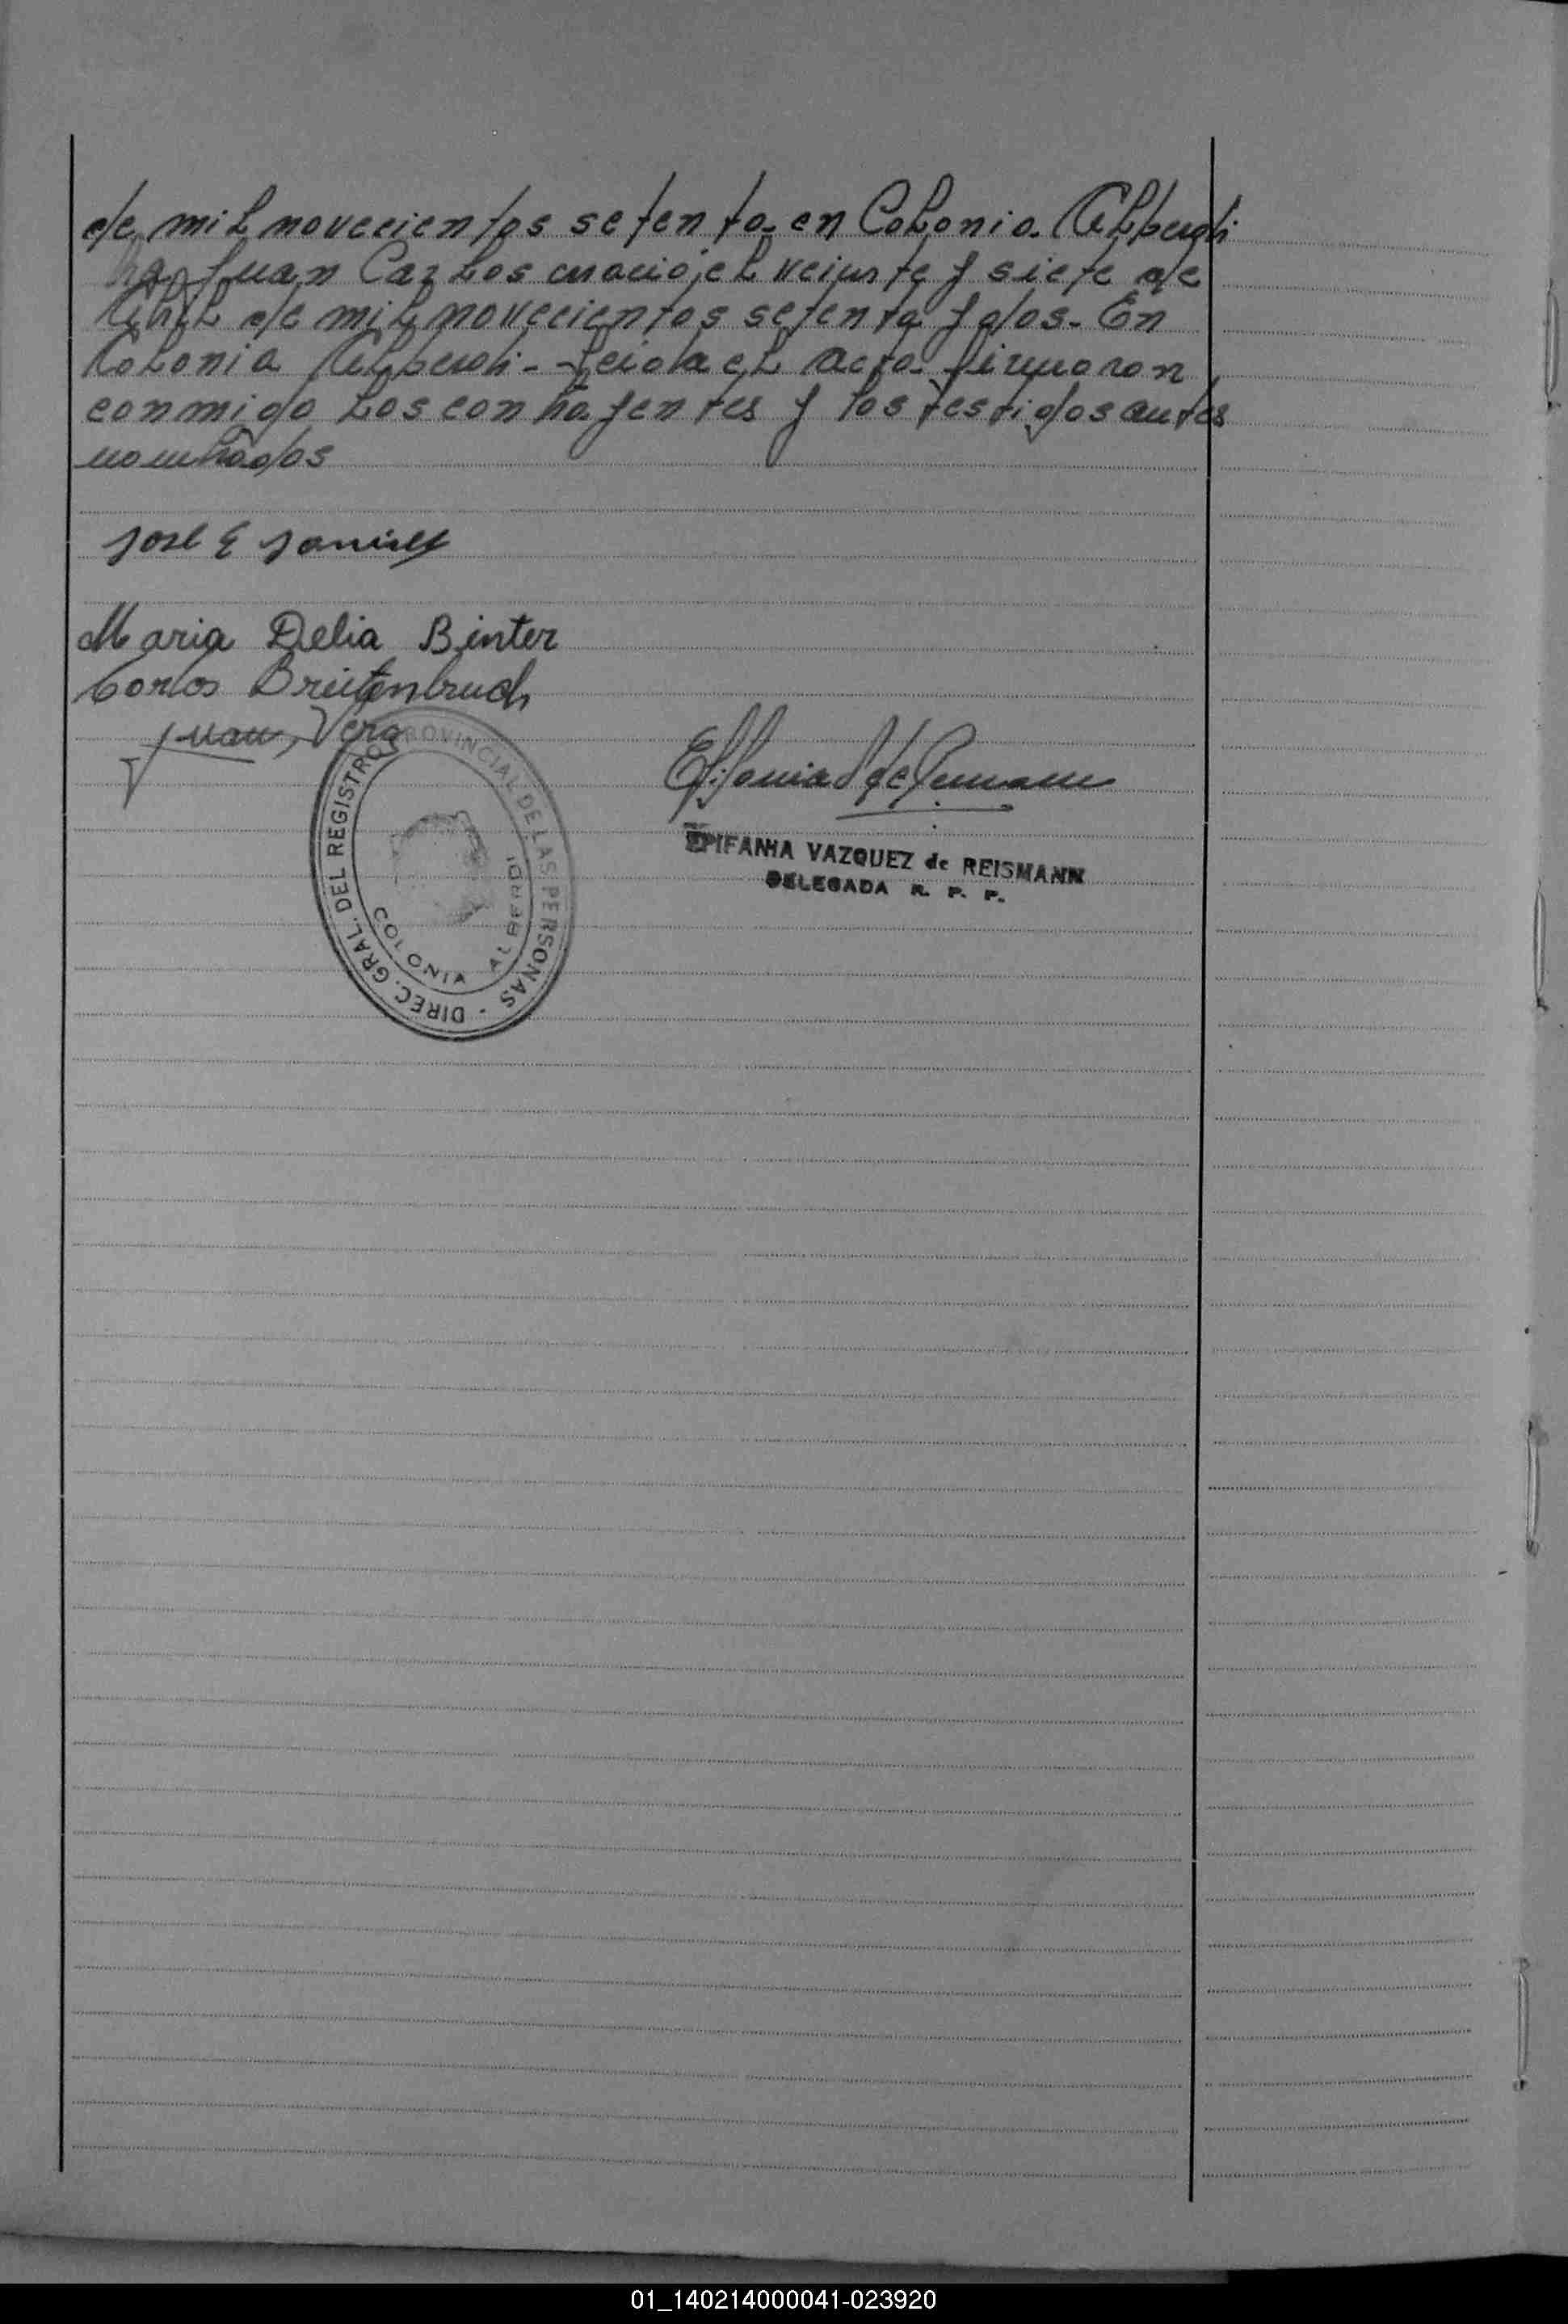 de mil novecientos setenta. en Colonia. Alberdi
Juan Carlos nació, el veinte y siete de
Abril de mil novecientos setenta y dos. En
Colonia Alberdi. - Leida el acta. firmaron
conmigo los contrayentes y los testigos antes
nombrados
José E
Maria Delia Binter
Carlos Breitenbruch
Juan, Vera
Epifania V de Reismann
EPIFANIA VAZQUEZ de REISMANN
DELEGADA R. P. P.
DIREC. GRAL. DEL REGISTRO PROVINCIAL DE LAS PERSONAS -
COLONIA ALBERDI
01_140214000041-023920